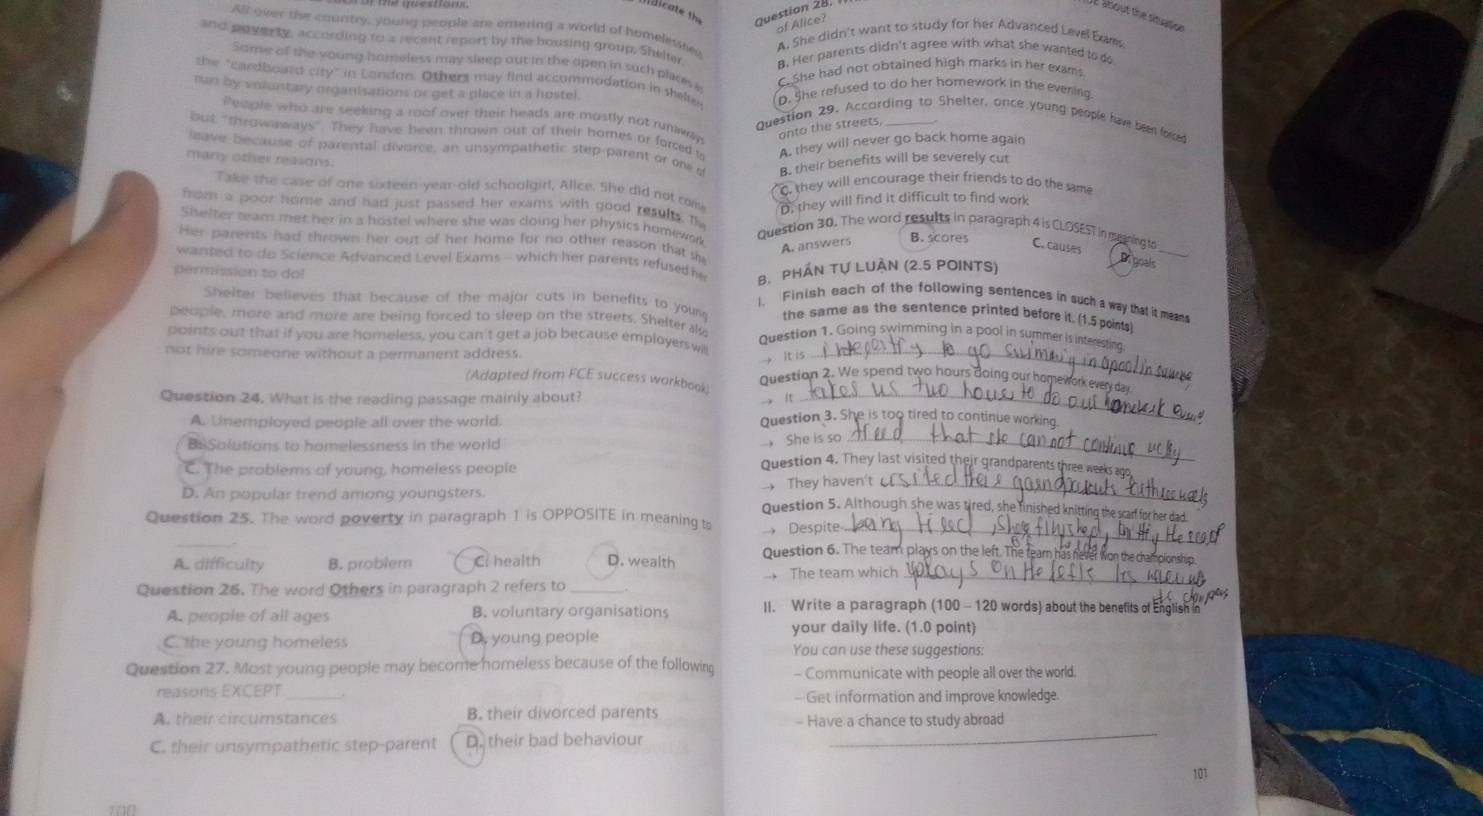 All over the country, young people are entering a world of homelessness
and poverty, according to a recent report by the housing group, Shelter.
Some of the young homeless may sleep out in the open in such places as
the "cardboard city" in London. Others may find accommodation in shelters
run by voluntary organisations or get a place in a hostel.
People who are seeking a roof over their heads are mostly not runaways
but "throwaways". They have been thrown out of their homes or forced to
leave because of parental divorce, an unsympathetic step-parent or one of
many other reasons.
Take the case of one sixteen-year-old schoolgirl, Alice. She did not come
from a poor home and had just passed her exams with good results. The
Shelter team met her in a hostel where she was doing her physics homework.
Her parents had thrown her out of her home for no other reason that she
wanted to do Science Advanced Level Exams – which her parents refused her
permission to do!
Shelter believes that because of the major cuts in benefits to young
people, more and more are being forced to sleep on the streets. Shelter also
points out that if you are homeless, you can't get a job because employers will
not hire someone without a permanent address.
(Adapted from FCE success workbook)
Question 24. What is the reading passage mainly about?
A. Unemployed people all over the world.
B. Solutions to homelessness in the world
C. The problems of young, homeless people
D. An popular trend among youngsters.
Question 25. The word poverty in paragraph 1 is OPPOSITE in meaning to
______.
A. difficulty B. problem C. health D. wealth
Question 26. The word Others in paragraph 2 refers to ______.
A. people of all ages B. voluntary organisations
C. the young homeless D. young people
Question 27. Most young people may become homeless because of the following
reasons EXCEPT ______.
A. their circumstances B. their divorced parents
C. their unsympathetic step-parent D. their bad behaviour
100
Question 28.
about the situation
of Alice?
A. She didn't want to study for her Advanced Level Exams.
B. Her parents didn't agree with what she wanted to do.
C. She had not obtained high marks in her exams.
D. She refused to do her homework in the evening.
Question 29. According to Shelter, once young people have been forced
onto the streets, ______.
A. they will never go back home again
B. their benefits will be severely cut
C. they will encourage their friends to do the same
D. they will find it difficult to find work
Question 30. The word results in paragraph 4 is CLOSEST in meaning to ______
A. answers B. scores C. causes D. goals
B. PHẦN TỰ LUẬN (2.5 POINTS)
I. Finish each of the following sentences in such a way that it means
the same as the sentence printed before it. (1.5 points)
Question 1. Going swimming in a pool in summer is interesting.
→ It is to go in a pool in
Question 2. We spend two hours doing our homework every day.
→ It takes us two hous to do our
Question 3. She is too tired to continue working.
→ She is so that she can not
Question 4. They last visited their grandparents three weeks ago.
→ They haven't
Question 5. Although she was tired, she finished knitting the scarf for her dad.
→ Despite being
Question 6. The team plays on the left. The team has never won the championship.
→ The team which plays on the
II. Write a paragraph (100 – 120 words) about the benefits of English in
your daily life. (1.0 point)
You can use these suggestions:
– Communicate with people all over the world.
– Get information and improve knowledge.
– Have a chance to study abroad
101